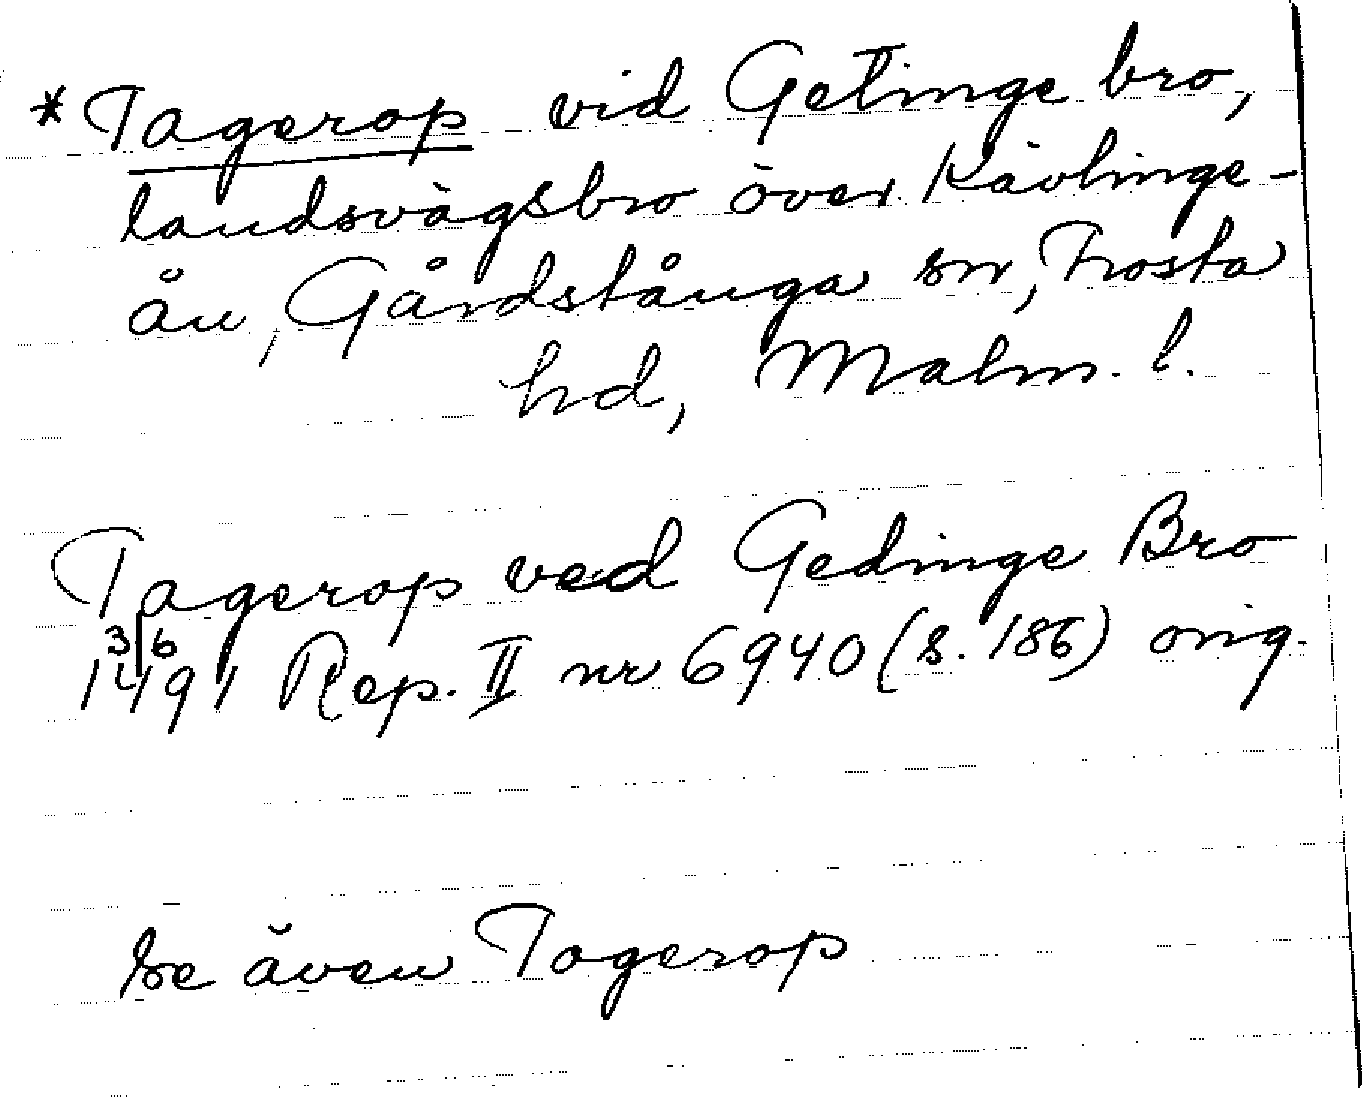 *Tagerop vid Getinge bro,
landsvägsbro över Kävlinge-
ån, Gårdstånga sn, Frosta
hd, Malm. l.
Tagerop ved Gedinge Bro
3/6
1491 Rep. II nr 6940 (s. 186) orig.
Se även Togerop